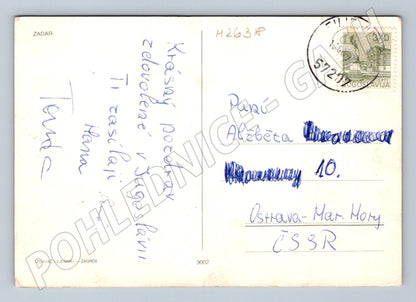 ZADAR
M263/8
Krásný pozdrav
z dovolené v Jugoslávii
Ti zasílají
Hana
Tonda
3.50
JUGOSLAVIJA
Paní
Alžběta
10.
Ostrava-Mar. Hory
ČSSR
ZAGREB
9002
POHLEDNICE-